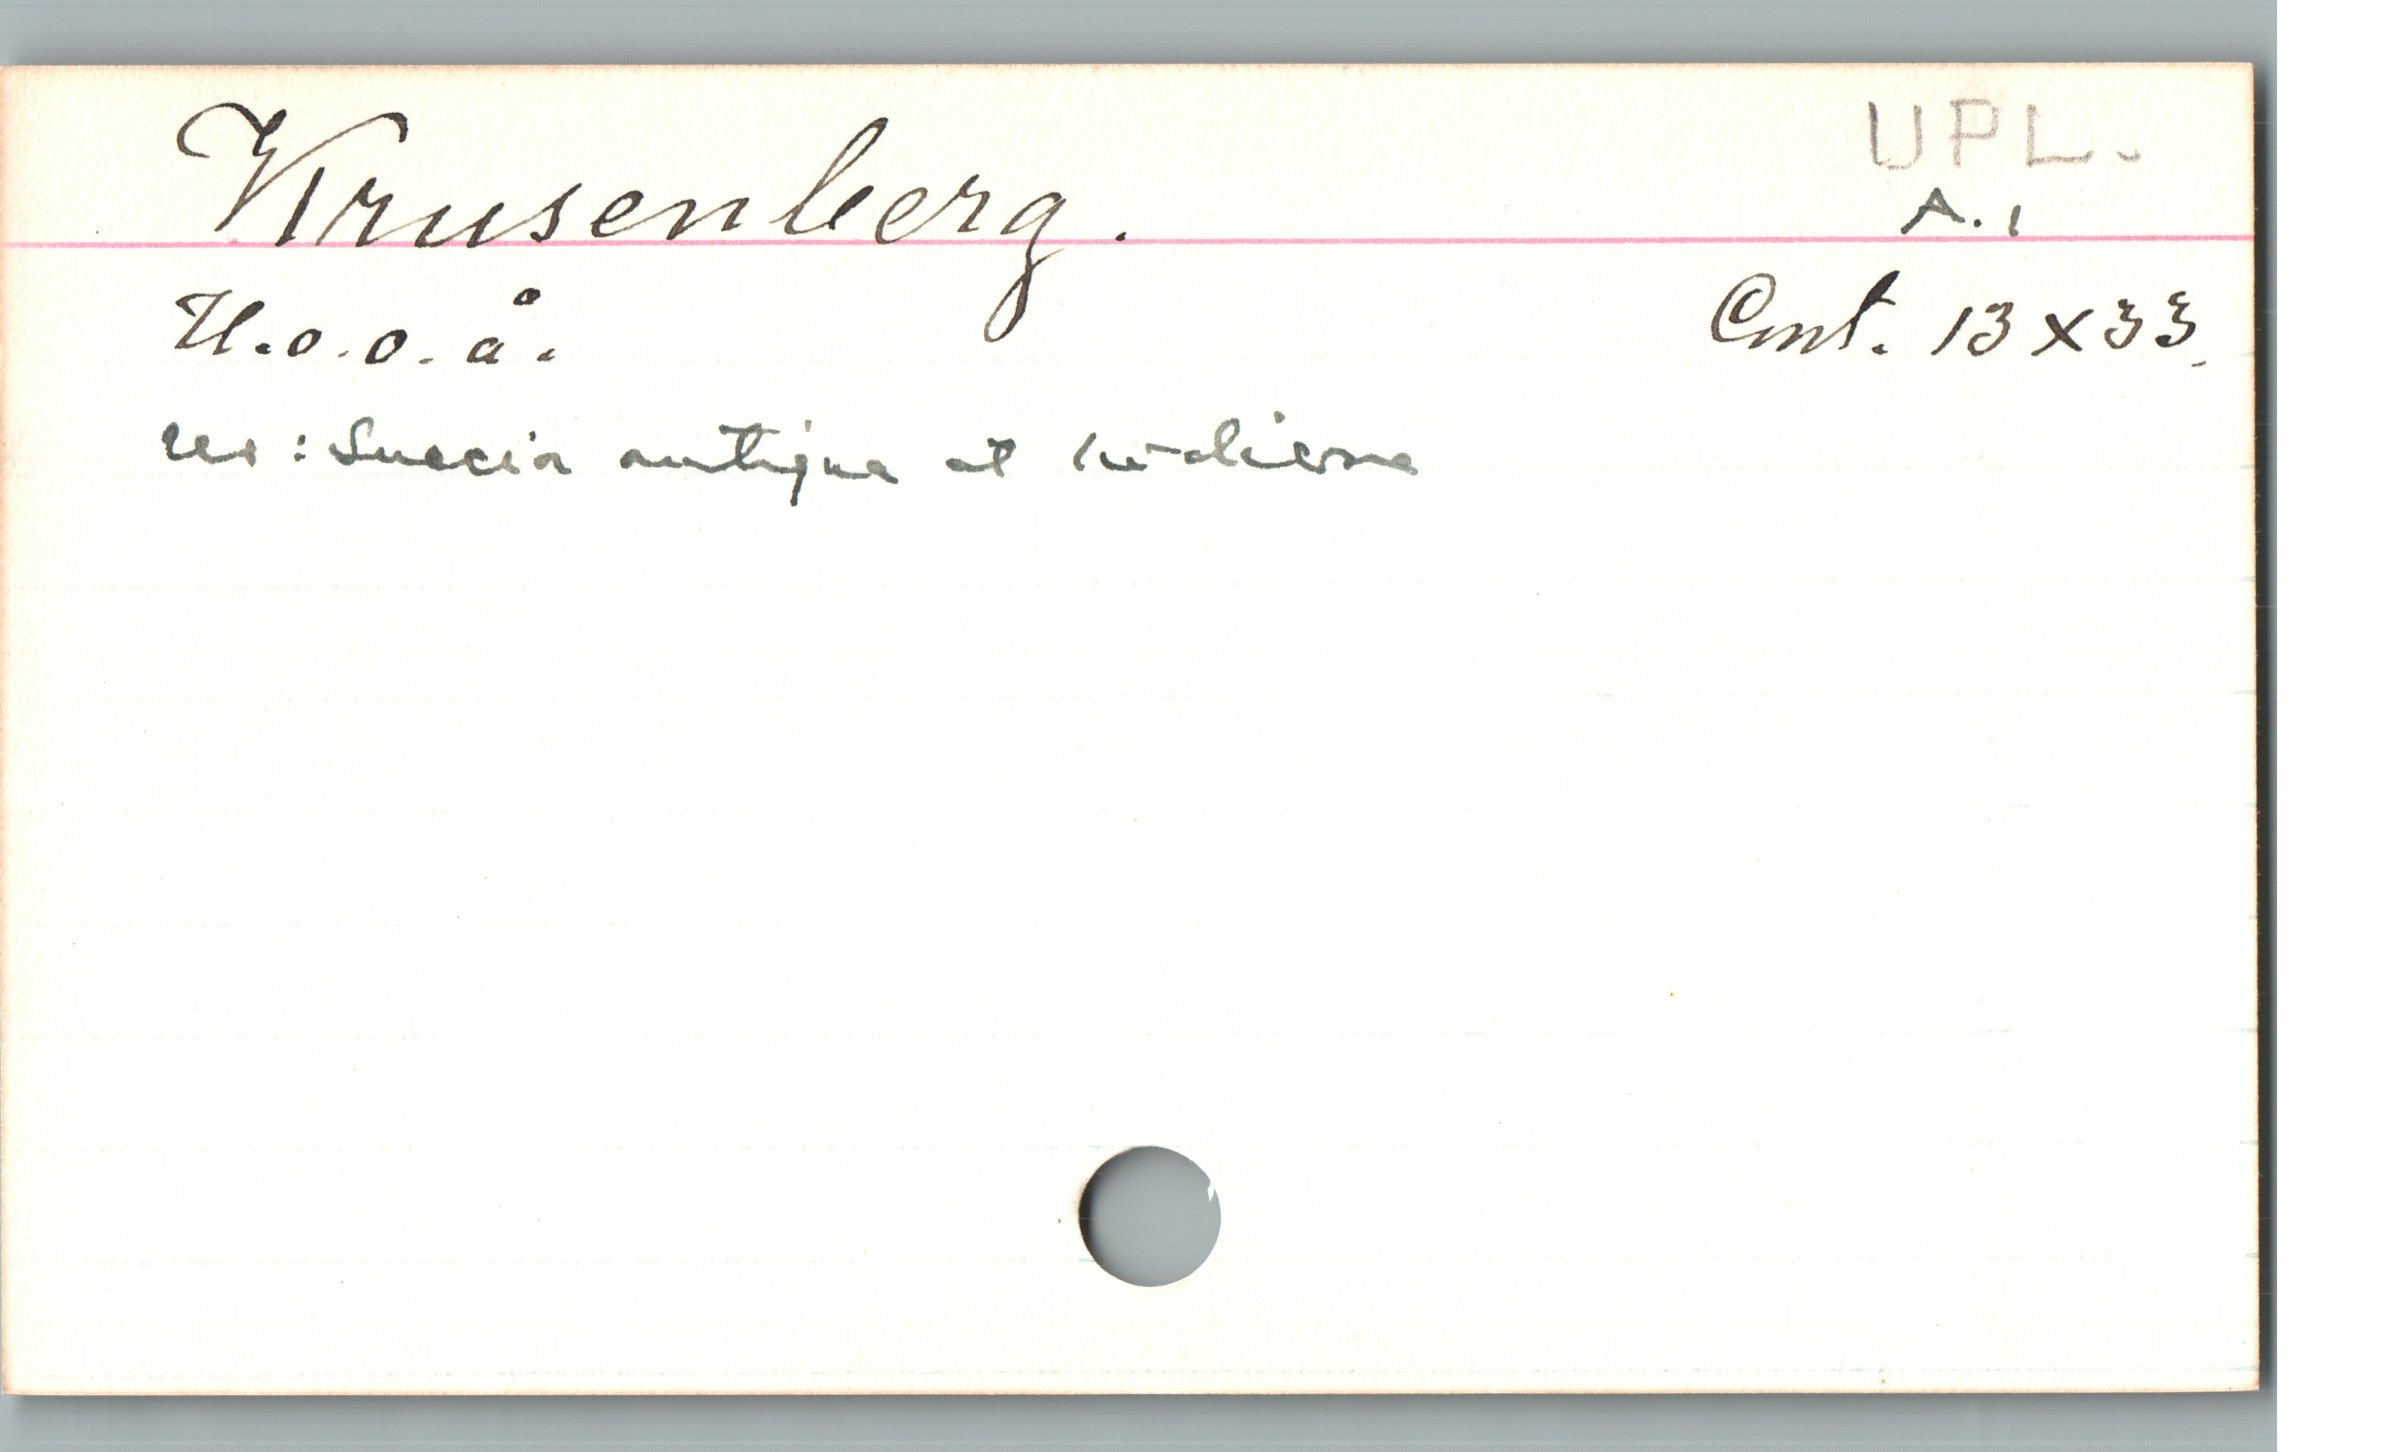 Krusenberg.
UPL.
A.1
U.o.o.å.
Cont. 13x33.
ur: Suecia antiqua et hodierna